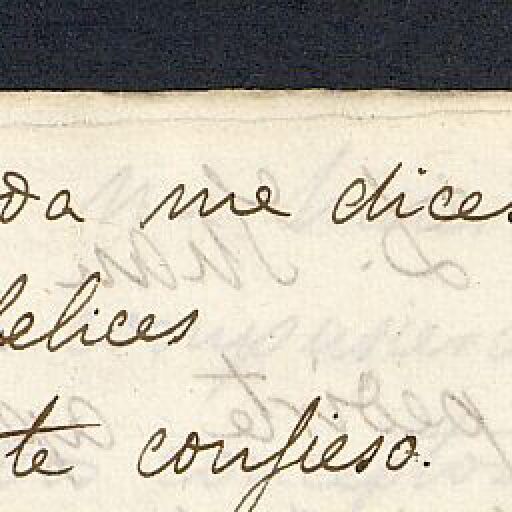 da me dices
felices
te confieso.